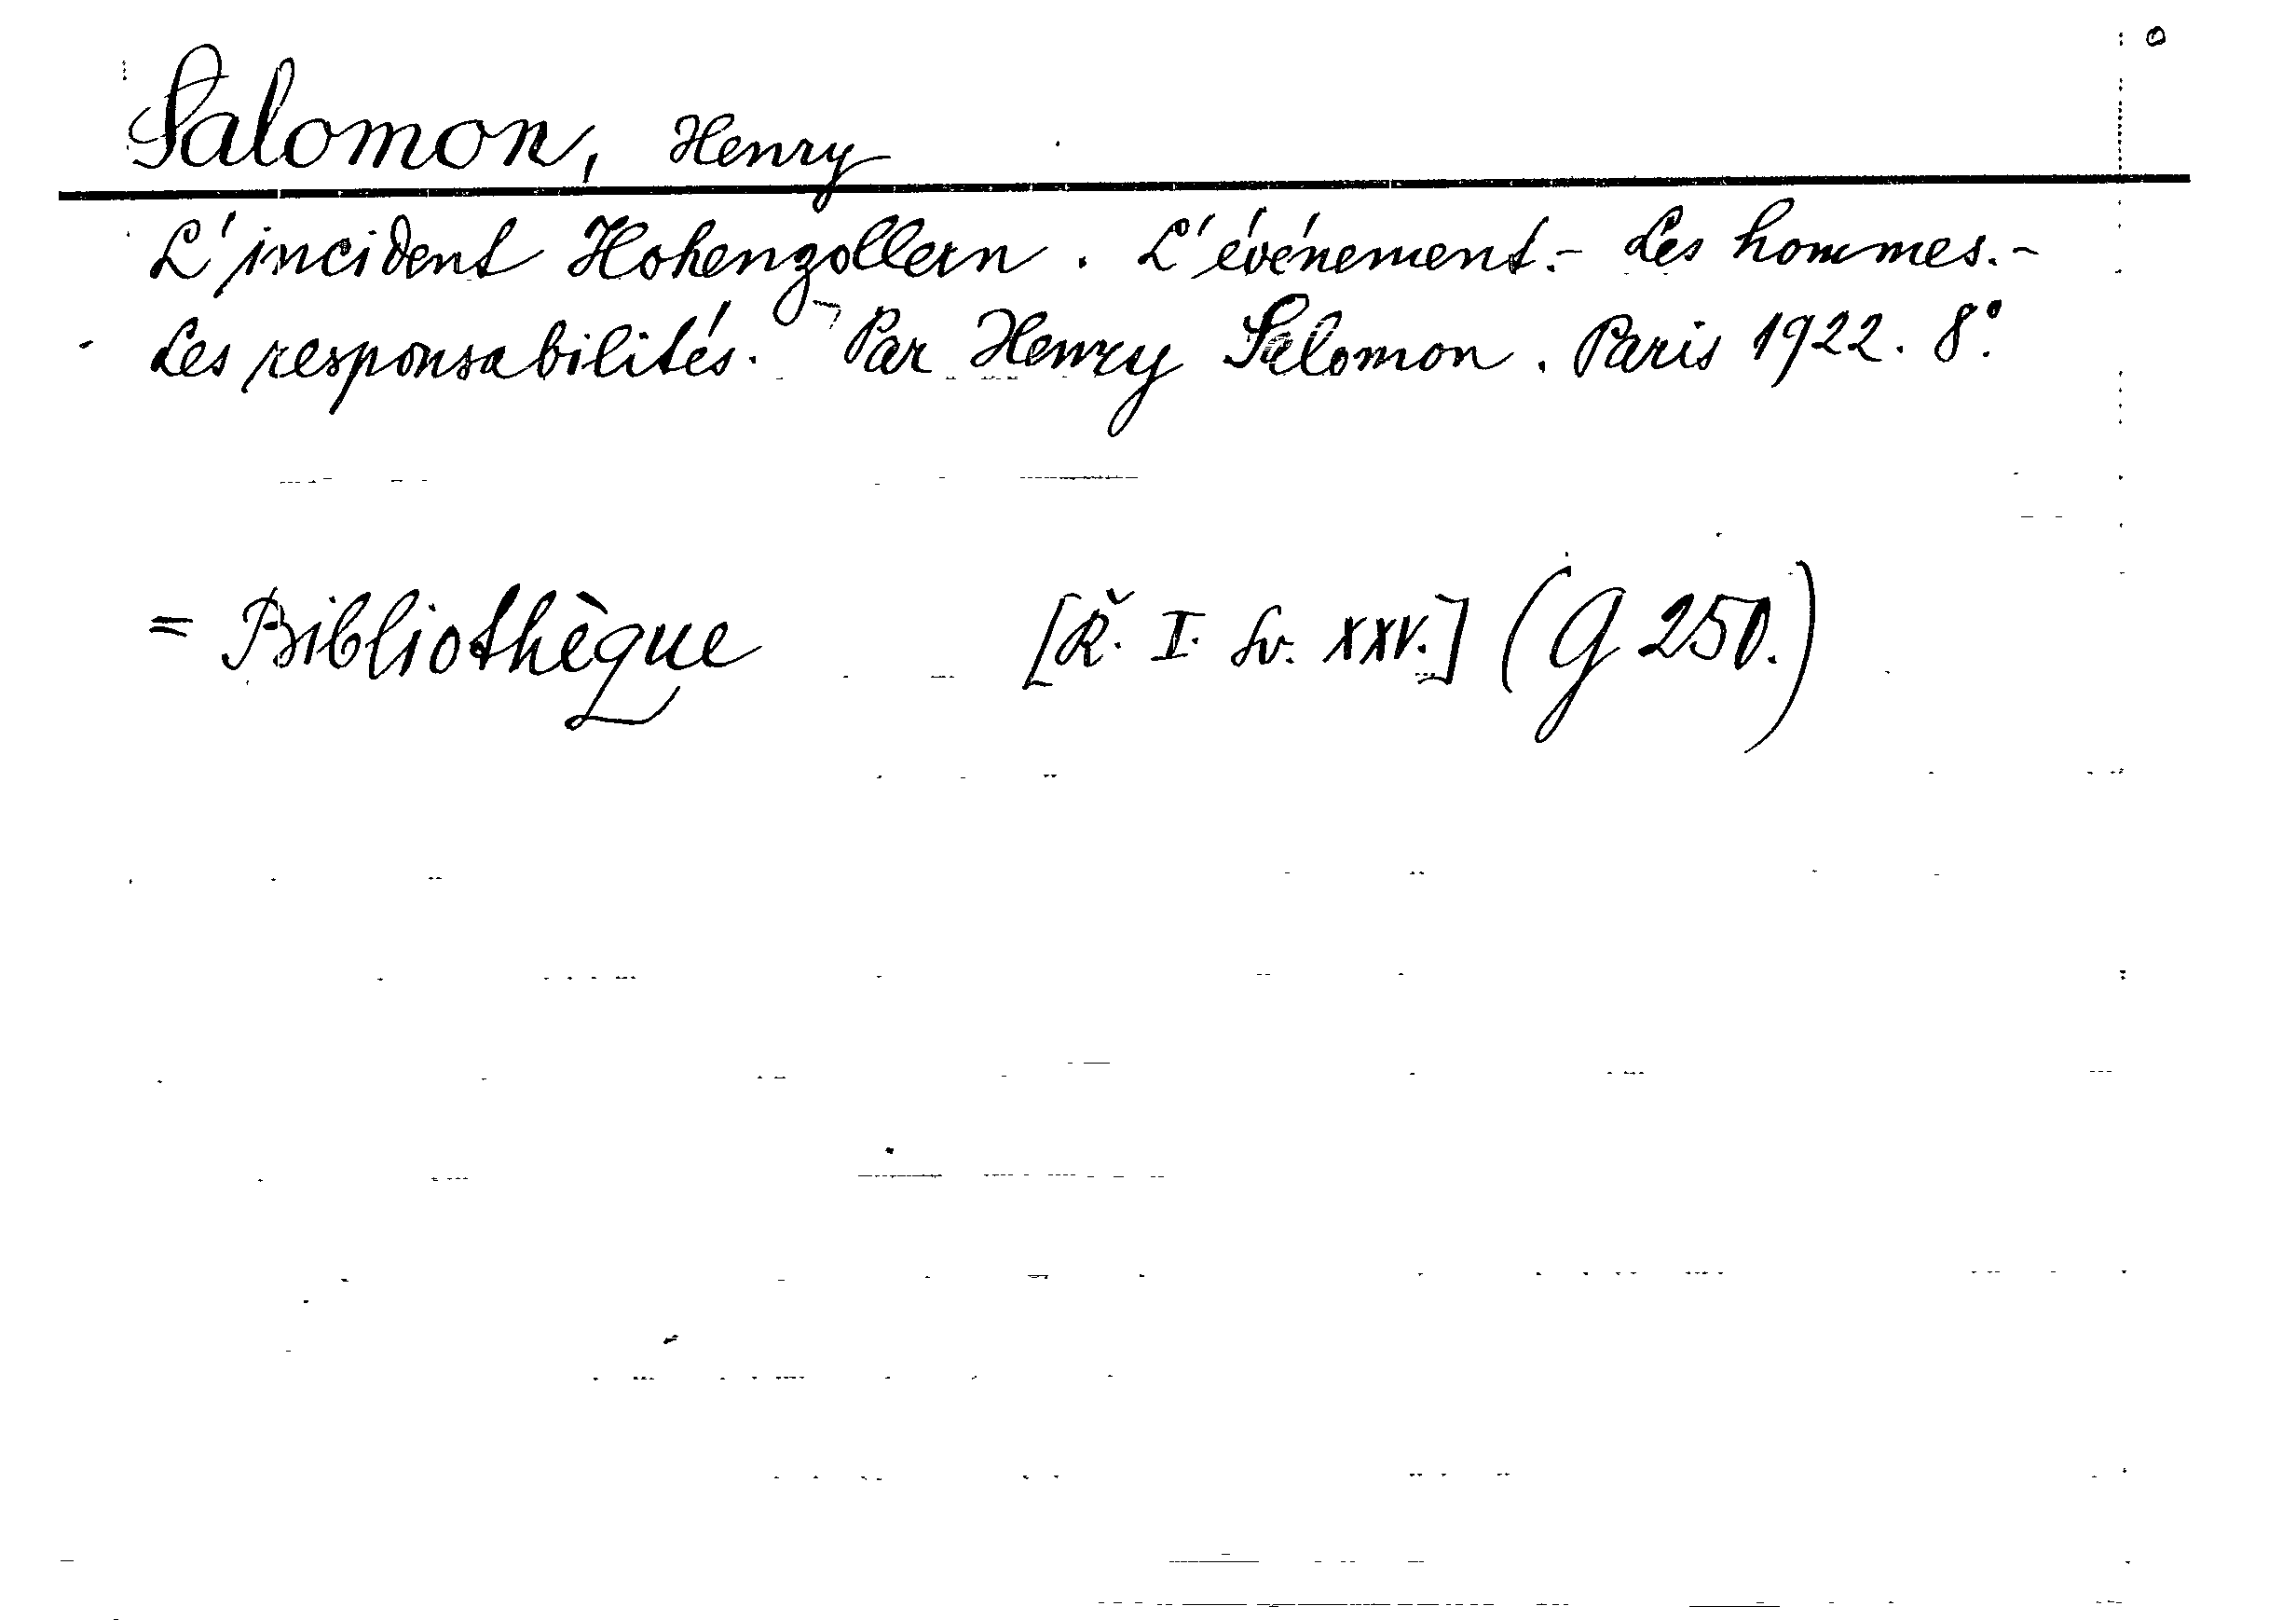 Salomon, Henry
L'incident Hohenzollern. L'événement.- Les hommes.-
Les responsabilités. Par Henry Salomon. Paris 1922. 8°.
= Bibliothèque [Ř. I. sv. XXV.] (G 250.)